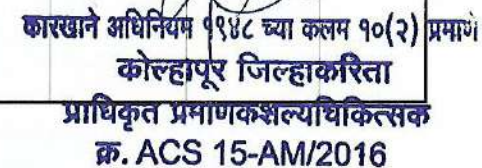 कारखाने अधिनियम १९४८ च्या कलम १०(२) प्रमाणे
कोल्हापूर जिल्हाकरिता
प्राधिकृत प्रमाणकशल्यचिकित्सक
क्र. ACS 15-AM/2016